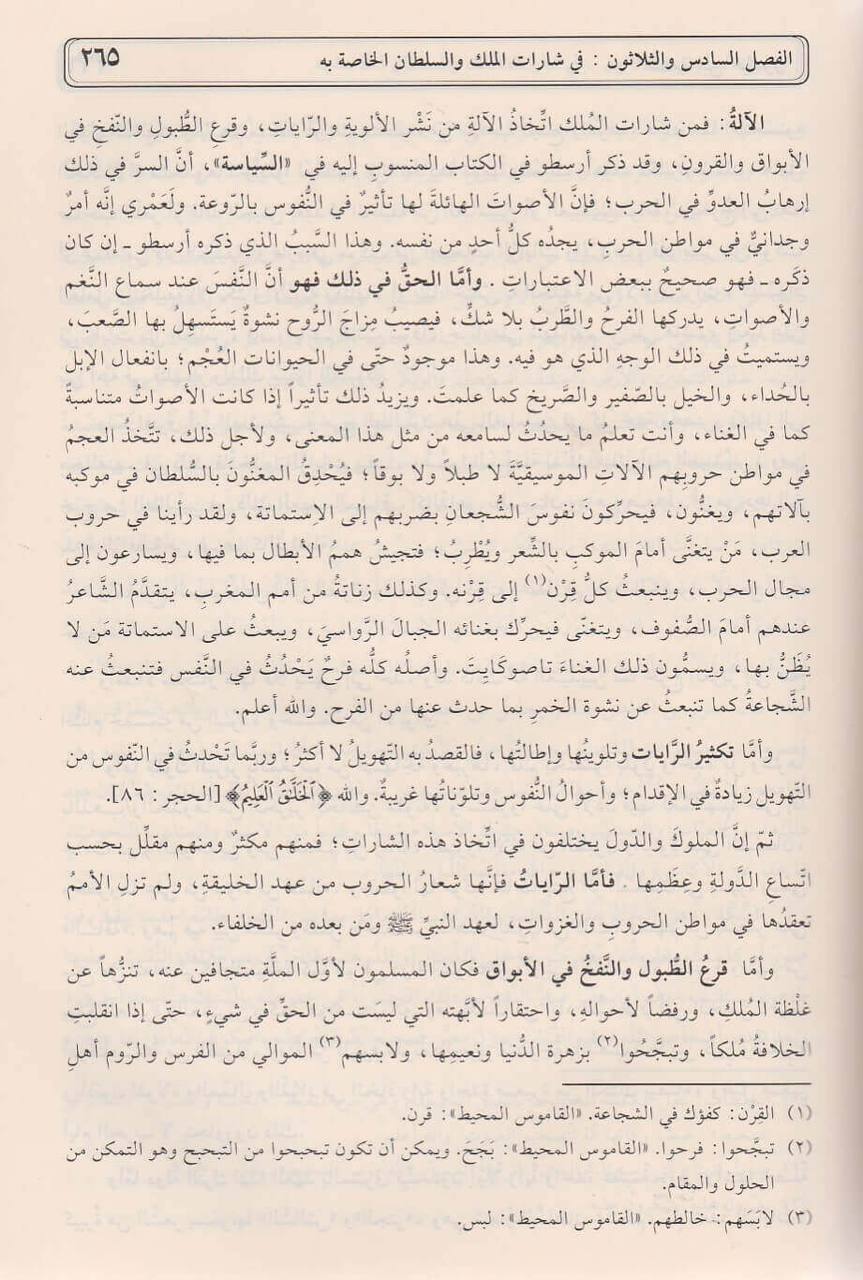 الفصل السادس والثلاثون : في شارات الملك والسلطان الخاصة به ٢٦٥
الآلةُ: فمن شارات المُلك اتِّخاذُ الآلةِ من نَشْر الألويةِ والرّاياتِ، وقرعِ الطُّبولِ والنّفخِ في
الأبواق والقرونِ، وقد ذكر أرسطو في الكتاب المنسوبِ إليه في «السِّياسة»، أنَّ السرَّ في ذلك
إرهابُ العدوِّ في الحرب؛ فإنَّ الأصواتَ الهائلةَ لها تأثيرٌ في النُّفوس بالرّوعة. ولَعَمْري إنَّه أمرٌ
وجدانيٌّ في مواطن الحربِ، يجدُه كلُّ أحدٍ من نفسه. وهذا السَّببُ الذي ذكره أرسطو ـ إن كان
ذكَره ـ فهو صحيحٌ ببعض الاعتباراتِ . وأمَّا الحقُّ في ذلك فهو أنَّ النَّفسَ عند سماع النَّغم
والأصواتِ، يدركها الفرحُ والطَّربُ بلا شكٍّ، فيصيبُ مِزاجَ الرُّوح نشوةٌ يَستَسهِلُ بها الصَّعبَ،
ويستميتُ في ذلك الوجهِ الذي هو فيه. وهذا موجودٌ حتّى في الحيوانات العُجْم؛ بانفعال الإبل
بالحُداء، والخيل بالصّفير والصَّريخ كما علمتَ. ويزيدُ ذلك تأثيراً إذا كانت الأصواتُ متناسبةً
كما في الغناء، وأنت تعلمُ ما يحدُثُ لسامعه من مثل هذا المعنى، ولأجل ذلك، تتَّخذُ العجمُ
في مواطن حروبِهم الآلاتِ الموسيقيَّةَ لا طبلاً ولا بوقاً؛ فيُحْدِقُ المغنُّونَ بالسُّلطان في موكبه
بآلاتهم، ويغنُّون، فيحرِّكونَ نفوسَ الشُّجعانِ بضربهم إلى الاِستماتة، ولقد رأينا في حروب
العرب، مَنْ يتغنَّى أمامَ الموكبِ بالشِّعر ويُطْرِبُ؛ فتجيشُ هممُ الأبطال بما فيها، ويسارعون إلى
مجال الحرب، وينبعثُ كلُّ قِرْن(١) إلى قِرْنه. وكذلك زناتةُ من أمم المغربِ، يتقدَّمُ الشَّاعرُ
عندهم أمامَ الصُّفوف، ويتغنّى فيحرِّك بغنائه الجبالَ الرَّواسيَ، ويبعثُ على الاستماتة مَن لا
يُظَنُّ بها، ويسمُّون ذلك الغناءَ تاصوكَايِتَ. وأصلُه كلُّه فرحٌ يَحْدُثُ في النَّفس فتنبعثُ عنه
الشَّجاعةُ كما تنبعثُ عن نشوة الخمرِ بما حدث عنها من الفرح. والله أعلم.
وأمَّا تكثيرُ الرَّايات وتلوينُها وإطالتُها، فالقصدُ به التّهويلُ لا أكثرُ؛ وربَّما تَحْدثُ في النّفوس من
التّهويل زيادةٌ في الإقدام؛ وأحوالُ النُّفوس وتلوّناتُها غريبةٌ. والله ﴿ٱلْخَلَّٰقُ ٱلْعَلِيمُ﴾ [الحجر: ٨٦].
ثمّ إنَّ الملوكَ والدّولَ يختلفون في اتِّخاذ هذه الشاراتِ؛ فمنهم مكثرٌ ومنهم مقلِّل بحسب
اتَّساعِ الدَّولةِ وعِظَمِها . فأمَّا الرّاياتُ فإنَّها شعارُ الحروب من عهد الخليقةِ، ولم تزلِ الأممُ
تعقدُها في مواطن الحروبِ والغزواتِ، لعهد النبيِّ ﷺ ومَن بعده من الخلفاء.
وأمَّا قرعُ الطُّبول والنَّفخُ في الأبواق فكان المسلمون لأوَّل الملَّةِ متجافين عنه، تنزُّهاً عن
غلْظة المُلكِ، ورفضاً لأحوالهِ، واحتقاراً لأبَّهته التي ليسَت من الحقِّ في شيءٍ، حتّى إذا انقلبتِ
الخلافةُ مُلكاً، وتبجَّحُوا(٢) بزهرة الدُّنيا ونعيمِها، ولابسهم(٣) الموالي من الفرس والرّوم أهلِ
(١) القِرْن: كفؤك في الشجاعة. «القاموس المحيط»: قرن.
(٢) تبجَّحوا: فرحوا. «القاموس المحيط»: بَجَحَ. ويمكن أن تكون تبحبحوا من التبحبح وهو التمكن من
الحلول والمقام.
(٣) لابَسَهم: خالطهم. «القاموس المحيط»: لبس.